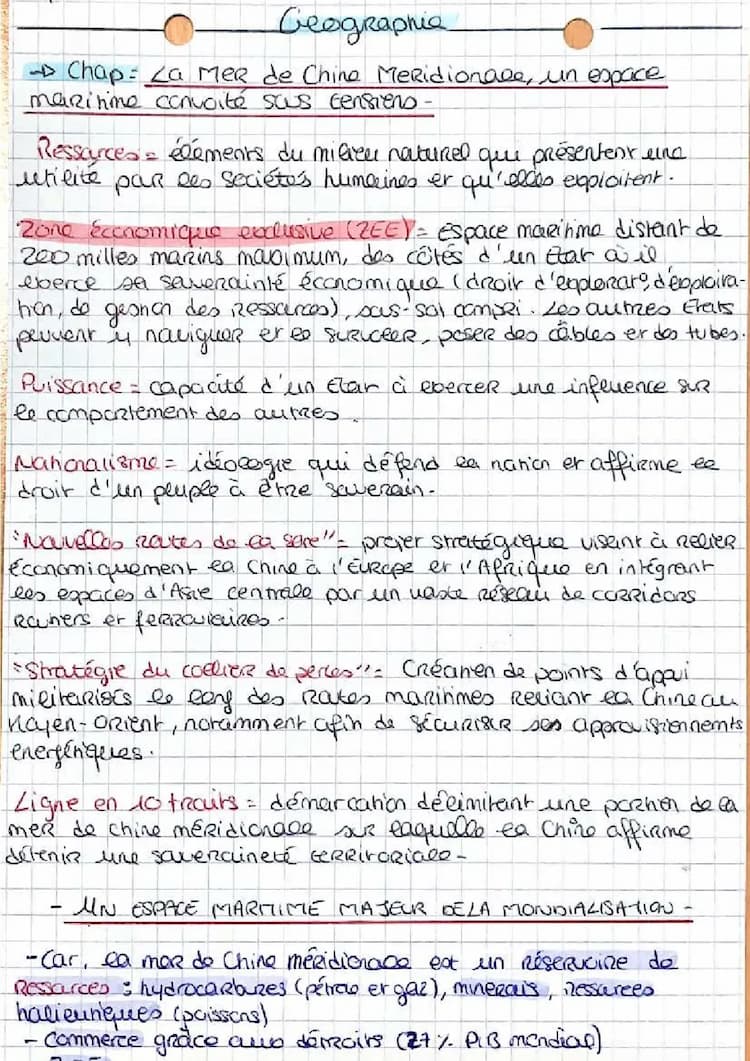 Geographie
→ Chap : La Mer de Chine Meridionale, un espace
maritime convoité sous tensions -
Ressources = éléments du milieu naturel qui présentent une
utilité par les sociétés humaines et qu'elles exploitent.
Zone économique exclusive (ZEE) = Espace maritime distant de
200 milles marins maximum, des côtés d'un Etat où il
exerce sa souverainté économique (droit d'explorato, d'exploita-
tion, de gestion des Ressources), sous-sol compri. Les autres Etats
peuvent y naviguer et le survoler, poser des câbles et des tubes.
Puissance = capacité d'un Etat à exercer une influence sur
le comportement des autres.
Nationalisme = idéologie qui défend la nation et affirme le
droit d'un peuple à être souverain -
"Nouvelles Routes de la soie" = projet stratégique visant à relier
économiquement la Chine à l'Europe et l'Afrique en intégrant
les espaces d'Asie centrale par un vaste réseau de corridors
routiers et ferroviaires -
"Stratégie du collier de perles" = Création de points d'appui
militarisés le long des Routes maritimes Reliant la Chine au
Moyen-Orient, notamment afin de sécuriser ses approvisionnements
énergétiques.
Ligne en 10 traits = démarcation délimitant une portion de la
mer de chine méridionale sur laquelle la Chine affirme
détenir une souveraineté territoriale -
- UN ESPACE MARITIME MAJEUR DE LA MONDIALISATION -
- Car, la mer de Chine méridionale est un réservoire de
Ressources : hydrocarbures (pétrole et gaz), minerais, ressources
halieutiques (poissons)
- Commerce grâce aux détroits (27 % PIB mondial)